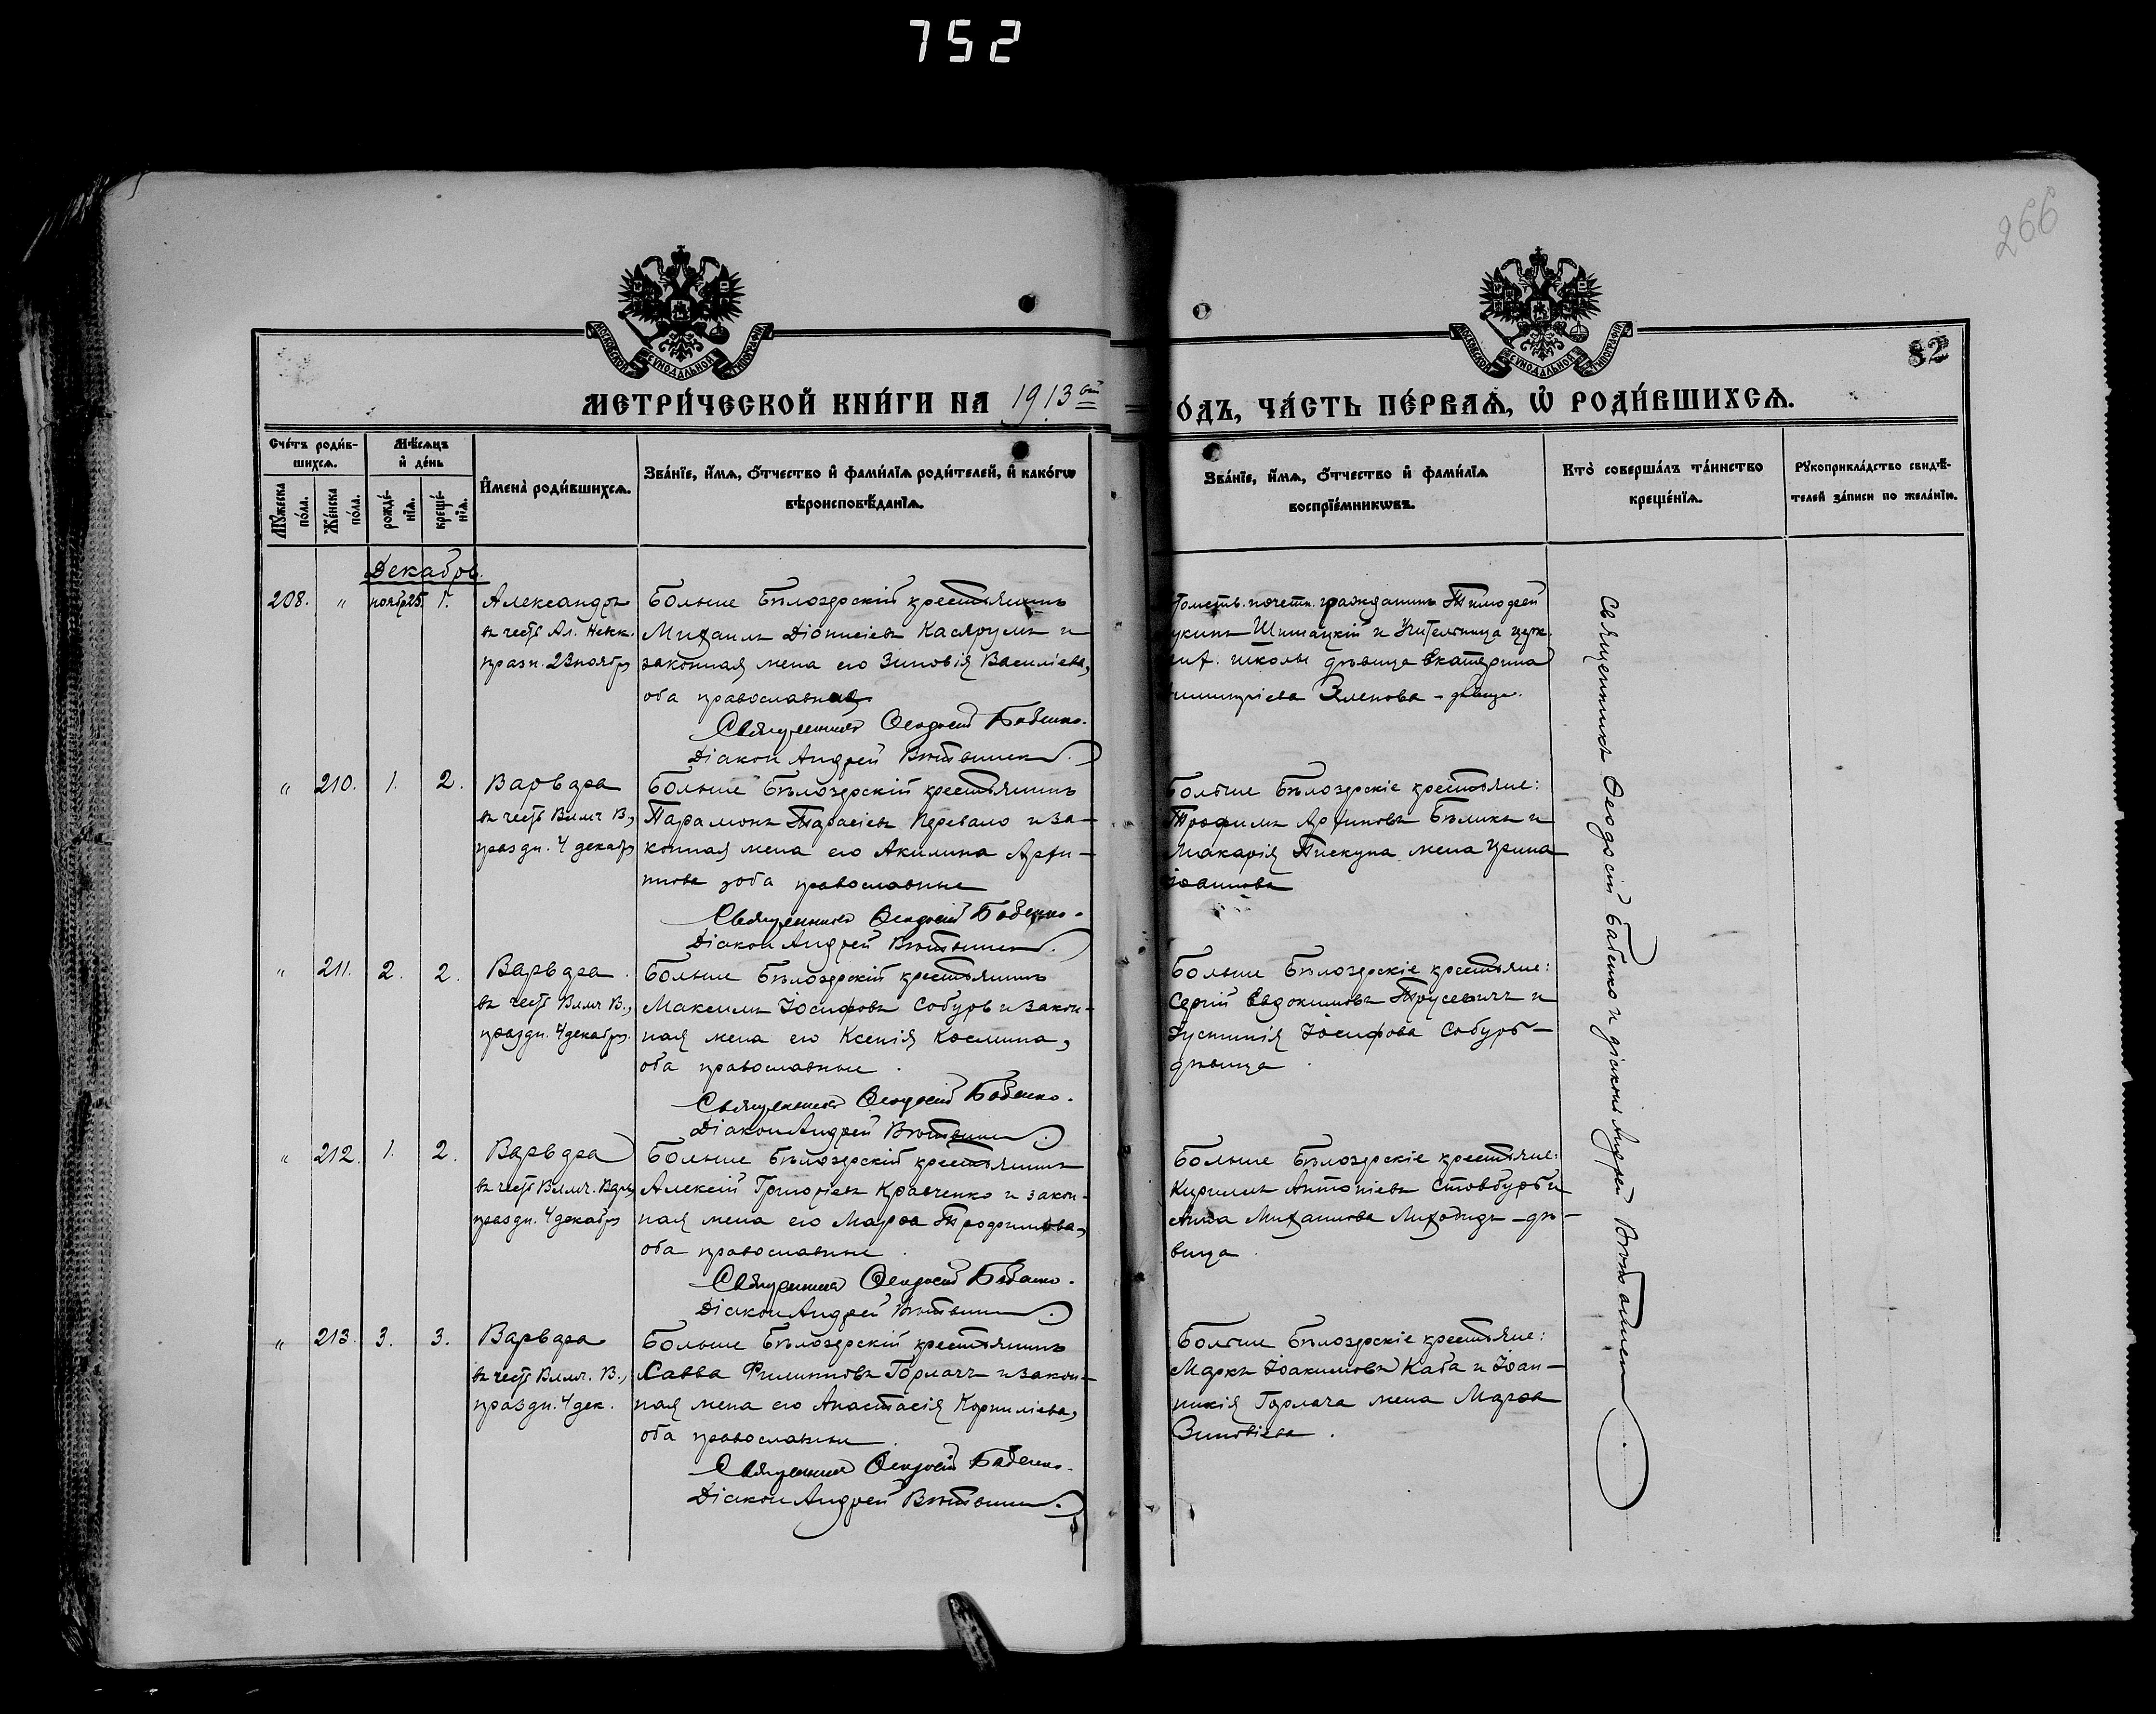 752
266
82
МОСКОВСКОЙ СѴНОДАЛЬНОЙ ТИПОГРАФІИ
МОСКОВСКОЙ СѴНОДАЛЬНОЙ ТИПОГРАФІИ
МЕТРИ́ЧЕСКОЙ КНИ́ГИ НА 1913 ОДЪ, ЧА́СТЬ ПЕ́РВАѦ, Ѡ РОДИ́ВШИХСѦ.
Сче́тъ роди́в-
шихсѧ.
Мꙋ́жеска по́ла.
Же́нска по́ла.
Мѣ́сѧцъ
и҆ де́нь
рожде́-
нїѧ.
креще́-
нїѧ.
И҆мена̀ роди́вшихсѧ.
Зва́нїе, и҆́мѧ, ѻ҆́тчество и҆ фами́лїѧ роди́телей, и҆ како́гѡ
вѣроисповѣ́данїѧ.
Зва́нїе, и҆́мѧ, ѻ҆́тчество и҆ фами́лїѧ
воспрїе́мникѡвъ.
Кто̀ соверша́лъ та́инство
креще́нїѧ.
Рꙋкоприкла́дство свидѣ́-
телей за́писи по жела́нїю.
Декабрь.
208. " нояб. 25. 1.
Александръ
въ честь Ал. Невск.
празн. 23 ноября
Больше Бѣлозерскій крестьянинъ
Михаилъ Діонисіевъ Касярумъ и
законная жена его Зиновія Василіева,
оба православныя
Священникъ Ѳеодосій Бабенко.
Діакон Андрей
почетн. гражданинъ Тимофей
укинъ Шишацкій и Учительница церк.
школы дѣвица Екатерина
имитріева Зленова - дѣвица.
" 210. 1. 2.
Варвара
въ честь Влмч В.,
праздн. 4 декабр
Больше Бѣлозерскій крестьянинъ
Парамонъ Тарасіевъ Перевало и за-
конная жена его Акилина Архи-
пова, оба православные
Священникъ Ѳеодосій Бабенко.
Діакон Андрей
Больше Бѣлозерскіе крестьяне:
Трофимъ Архиповъ Бѣликъ и
Макарія Пискуна жена Ирина
Іоаннова
" 211. 2. 2.
Варвара
въ честь Влмч В.,
праздн. 4 декабр.
Больше Бѣлозерскій крестьянинъ
Максимъ Іосифовъ Собурь и закон-
ная жена его Ксенія Космина,
оба православные.
Священникъ Ѳеодосій Бабенко.
Діакон Андрей
Больше Бѣлозерскіе крестьяне:
Сергій Евдокимовъ Трусевичъ и
Іустинія Іосифова Собурь -
дѣвица
" 212. 1. 2.
Варвара
въ честь Влмч. Варв
праздн. 4 декабр
Больше Бѣлозерскій крестьянинъ
Алексій Григоріевъ Кравченко и закон-
ная жена его Марѳа Трофимова,
оба православные.
Священникъ Ѳеодосій Бабенко.
Діакон Андрей
Больше Бѣлозерскіе крестьяне:
Кириллъ Антоніевъ Стовбуръ и
Анна Михаилова Лиходидъ - дѣ-
вица.
" 213. 3. 3.
Варвара
въ честь Влмч. В.,
праздн. 4 дек.
Больше Бѣлозерскій крестьянинъ
Савва Филипповъ Горлачъ и закон-
ная жена его Анастасія Корниліева,
оба православные.
Священникъ Ѳеодосій Бабенко.
Діакон Андрей
Больше Бѣлозерскіе крестьяне:
Маркъ Іоакимовъ Каба и Іоан-
никія Горлача жена Марѳа
Зиновіева.
Священникъ Ѳеодосій Бабенко и діаконъ Андрей